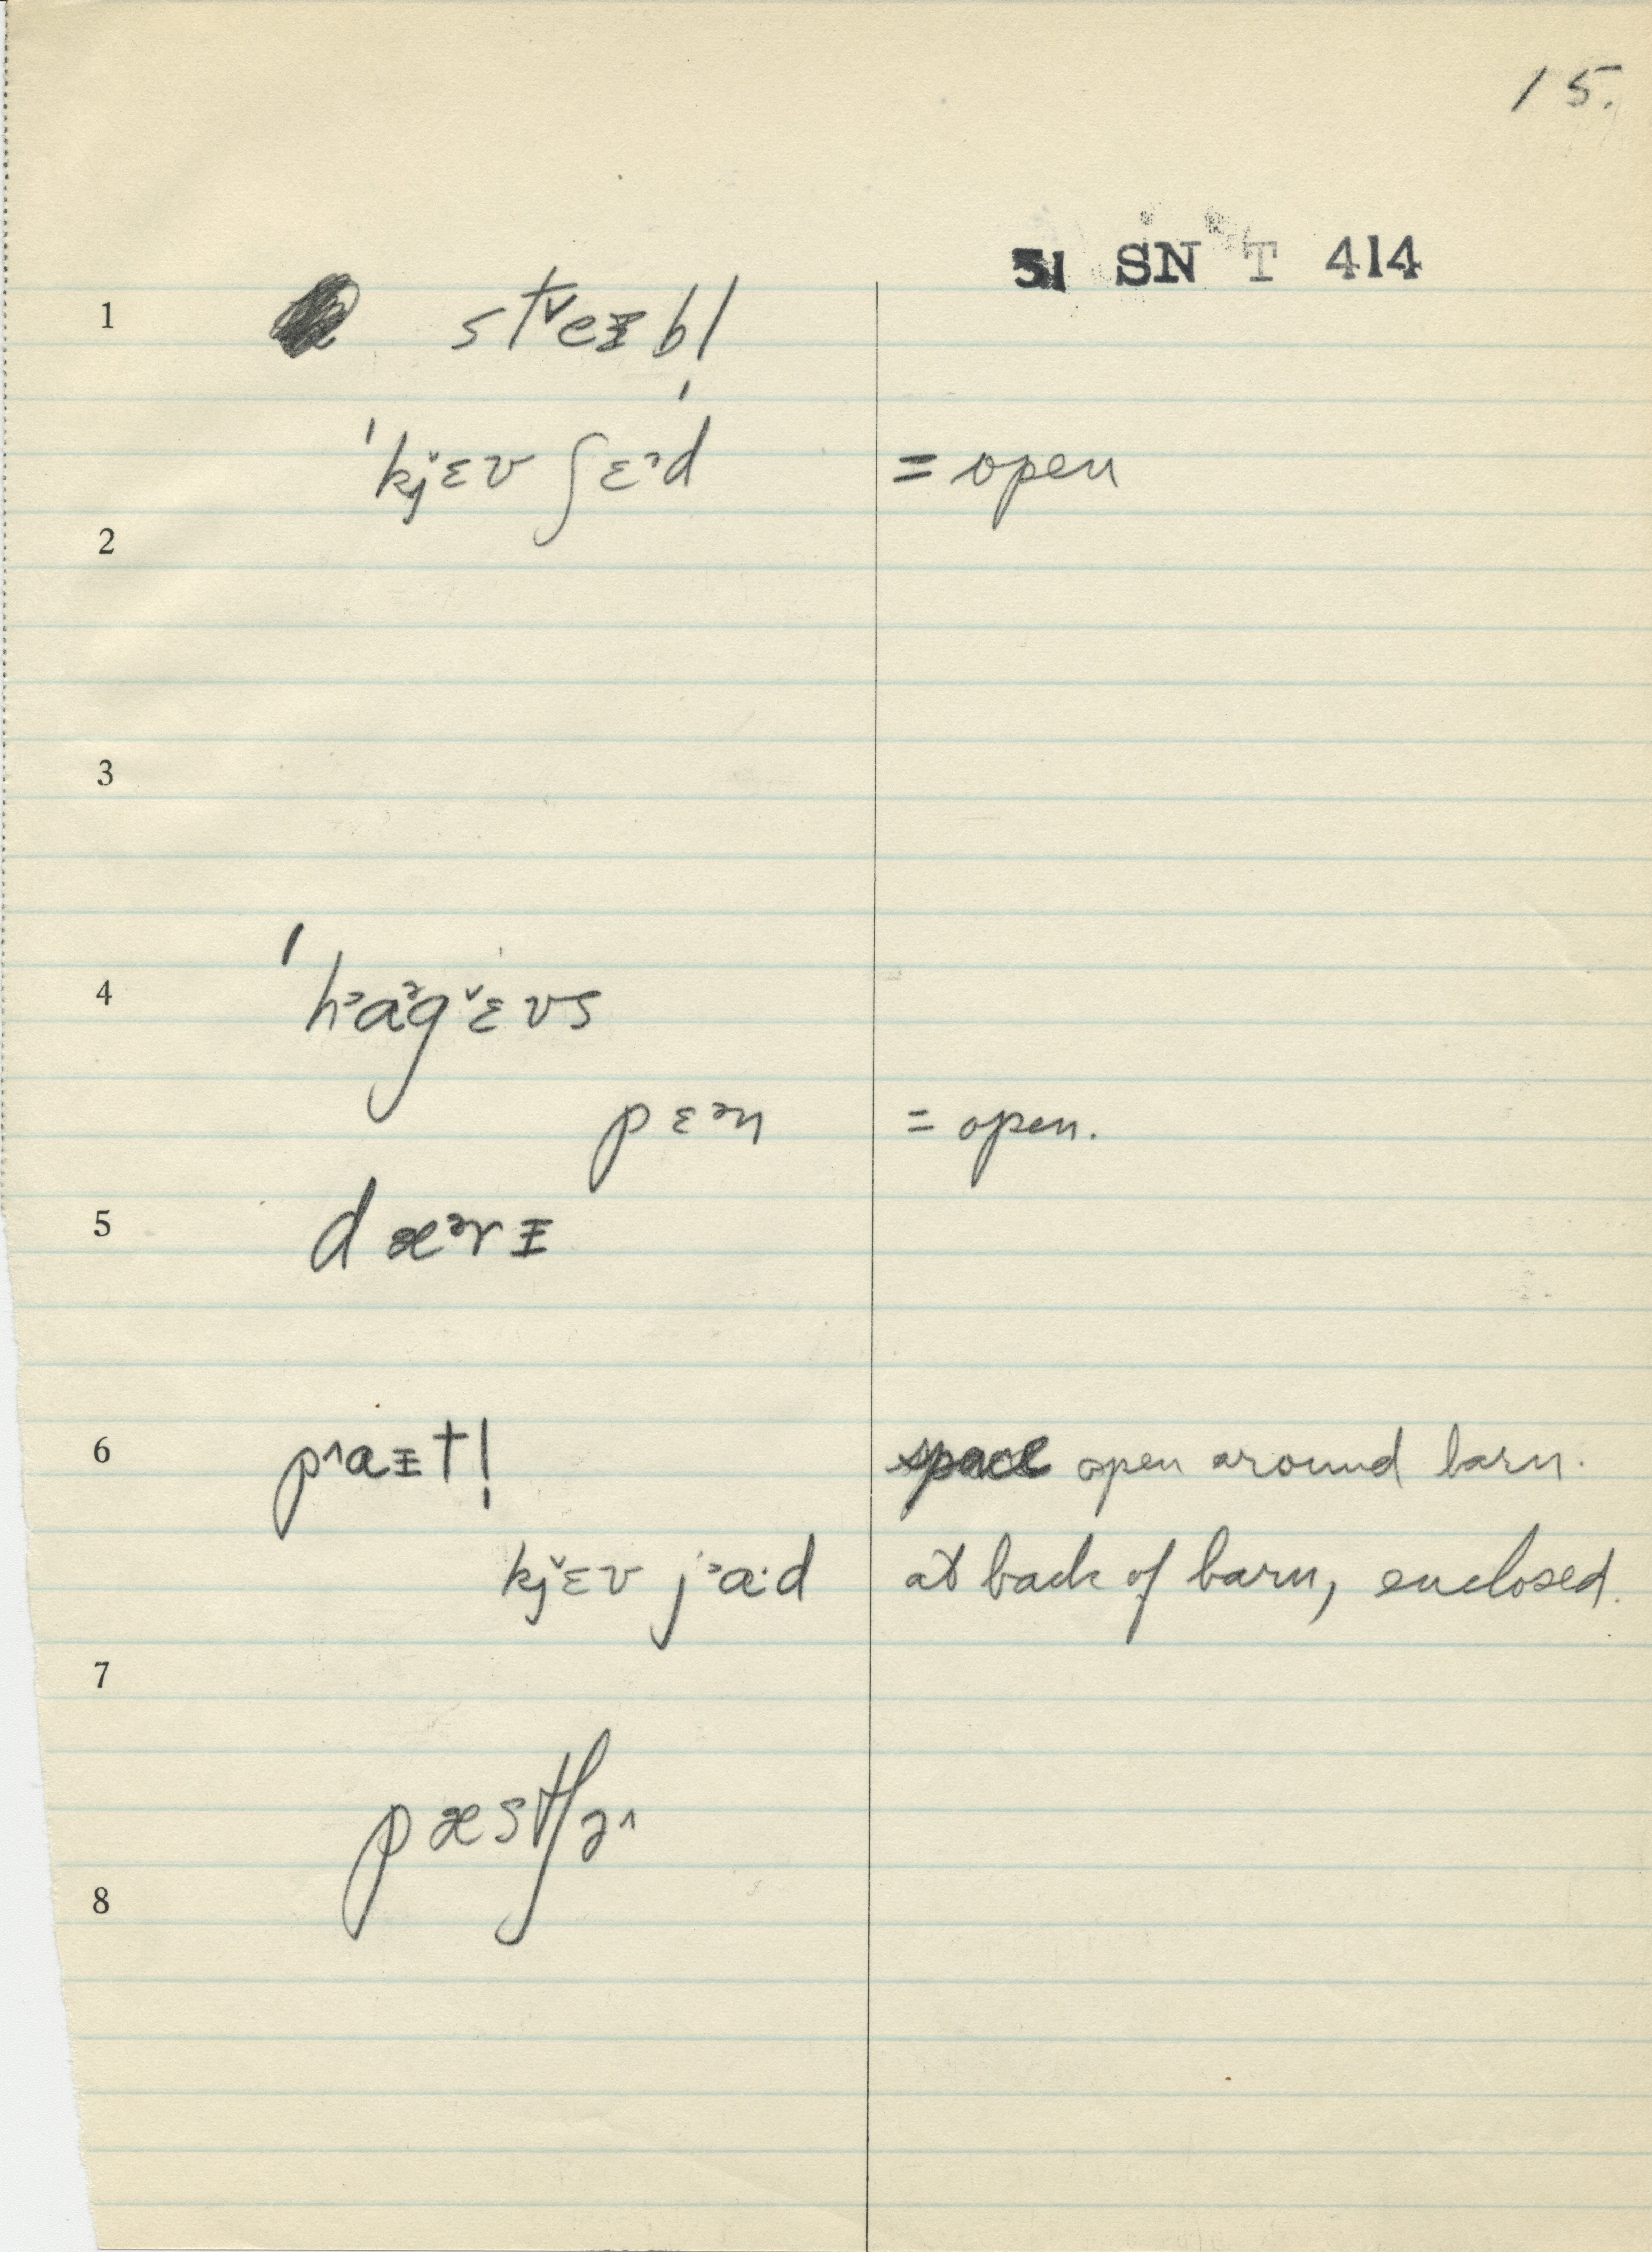 15.
51 SN T 414
1 stᵛeᵻbl
ˈkjᵛɛʊ ʃɛᵊˈd = open
2
3
4 ˈhᵊaᵊgᵛɛʊs
pɛᵊn = open.
5 dæᵊrᵻ
6 pʌaᵻtl̩ space open around barn.
kjᵛɛʊ jᵊa·d at back of barn, enclosed.
7
pæstʃə^
8